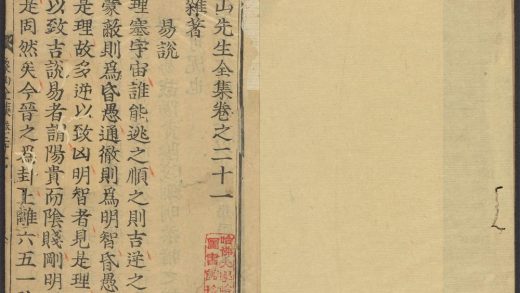 山先生全集卷之二十一
雜著
易說
理塞宇宙誰能逃之順之則吉逆之
蒙蔽則爲昏愚通徹則爲明智昏愚
是理故多逆以致凶明智者見是理
以致吉說易者謂陽貴而陰賤剛明
是固然矣今晉之爲卦上離六五一
哈佛大學哈
圖書館珍